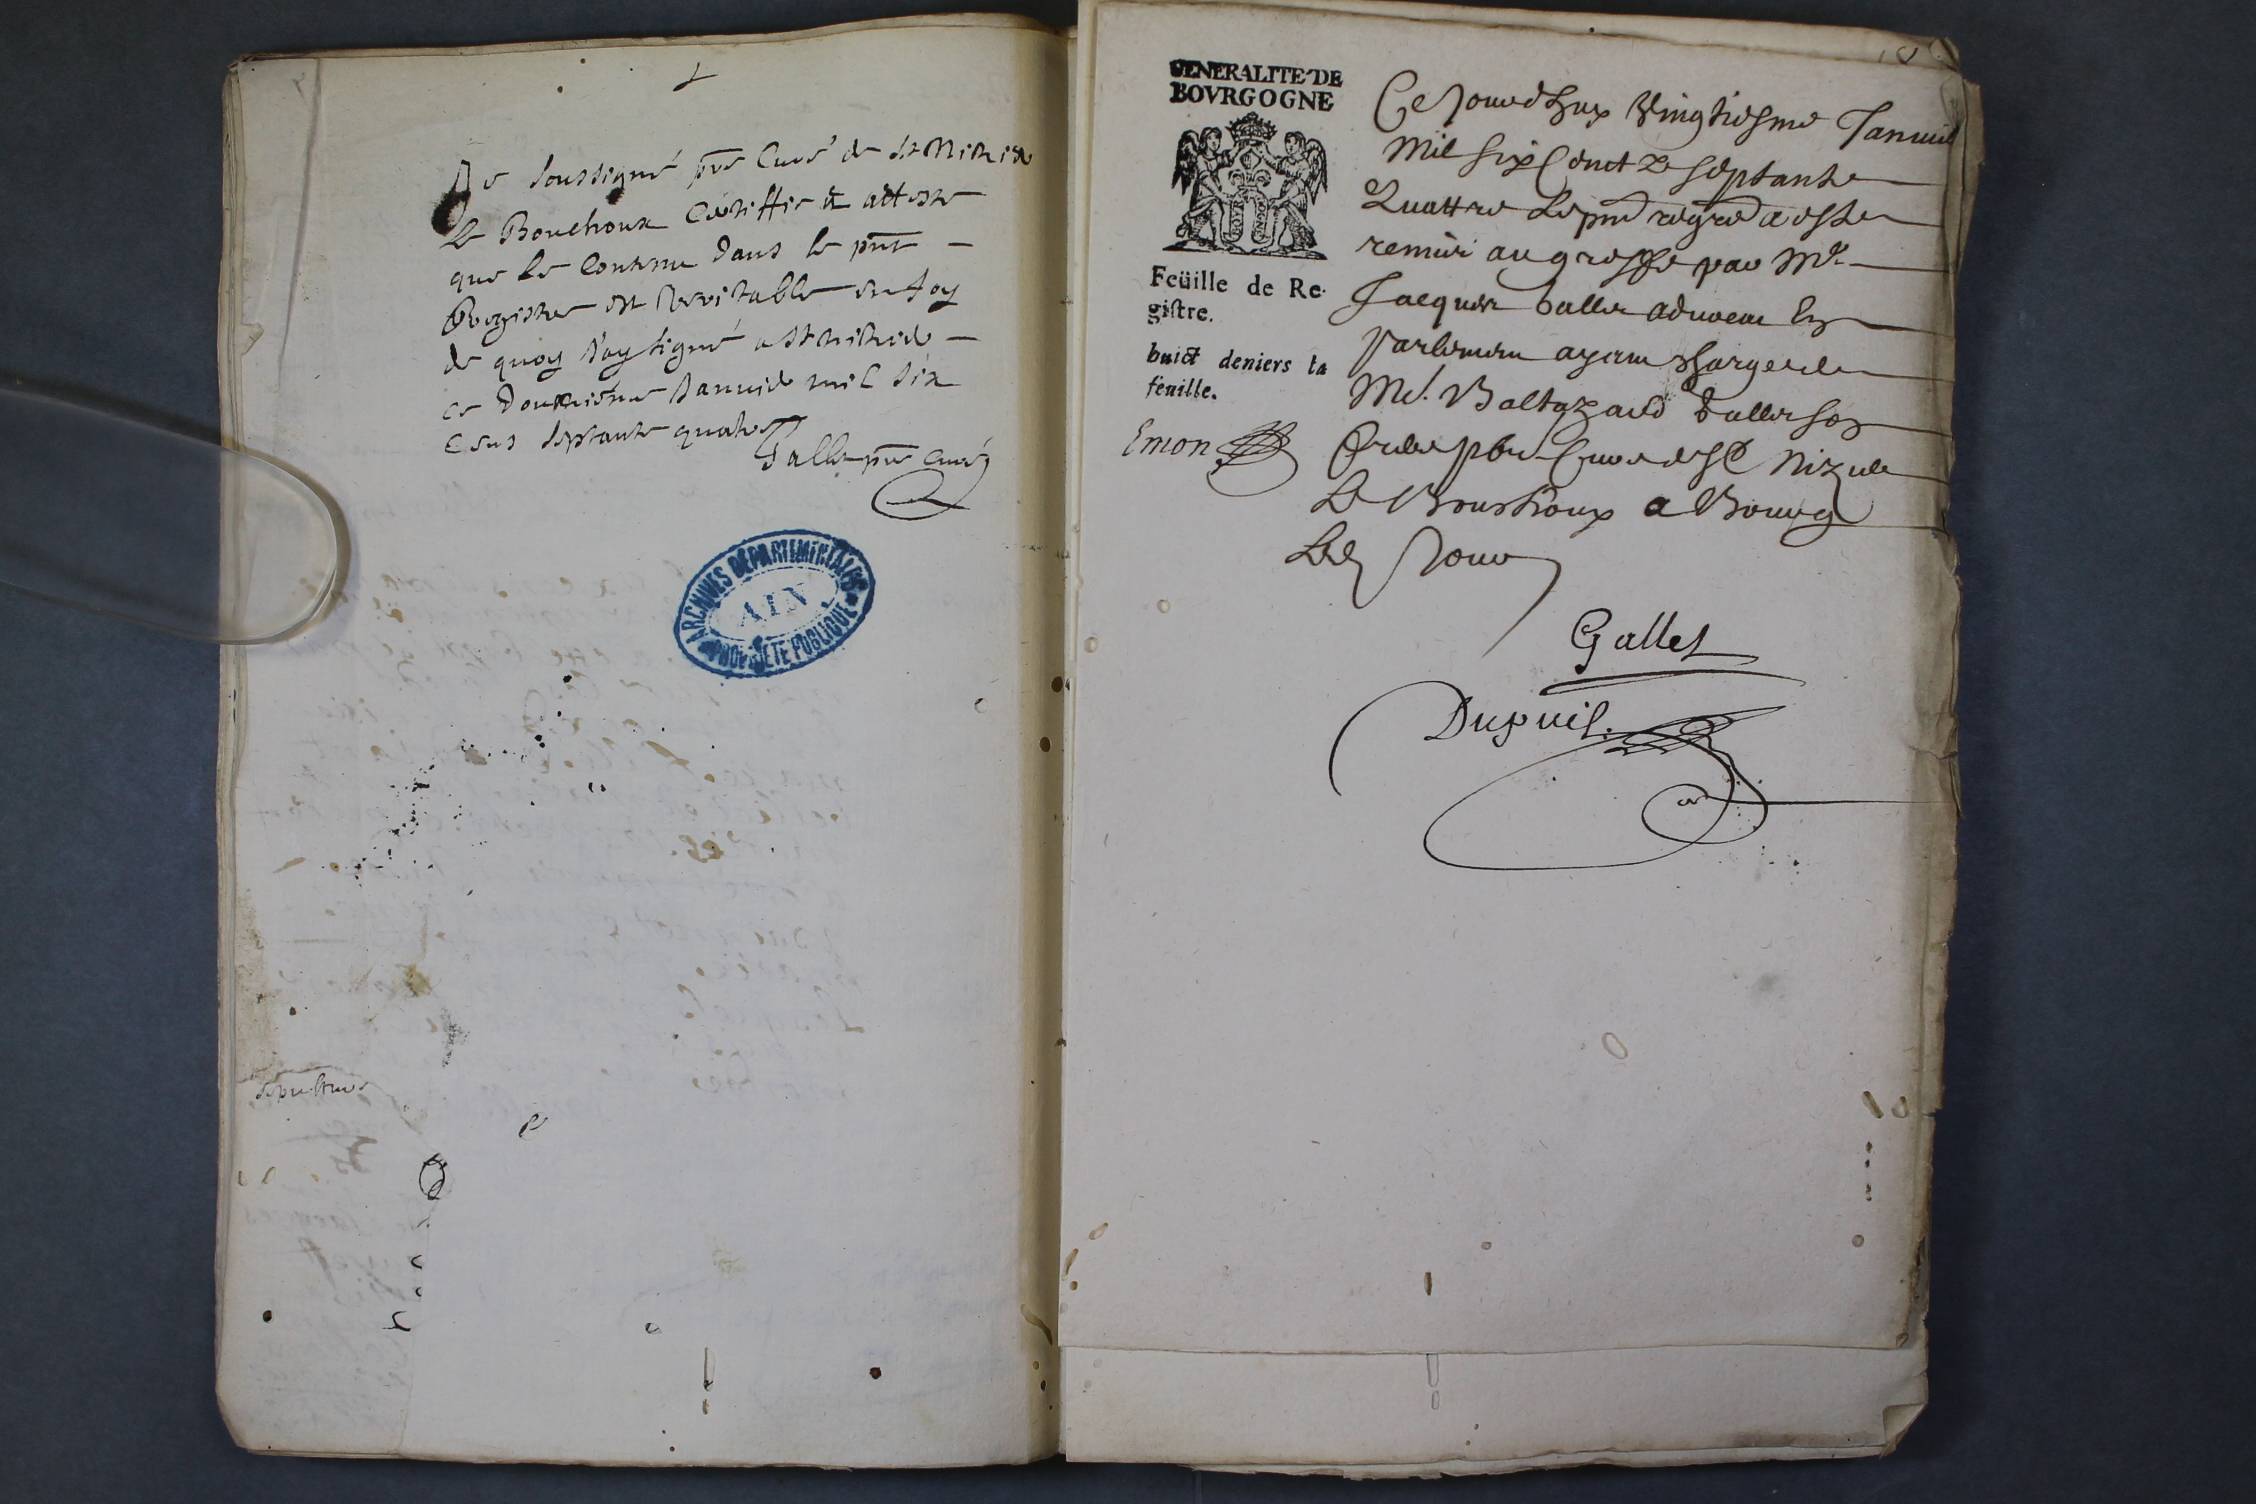 Je soussigné pre Curé de St Nizier
le Bouchoux Certiffie et atteste
que le Contenu dans le pnt
Registre est veritable en foy
de quoy j'ay signé a St Nizier
ce douzieme Janvier mil six
cens septante quatre
Galle pre curé
ARCHIVES DEPARTEMENTALES
AIN
PROPRIETE PUBLIQUE
sepulture
GENERALITE DE
BOVRGOGNE
Feüille de Re-
gistre.
huict deniers la
feuille.
Emon
Ce Jourdhuy vingtiesme Janvier
Mil six Cent & septante
Quattre Le pnt regre a esté
remis au greffe par Me
Jacques Galler advocat En
Parlement ayant charge de
Me Baltazard Galler son
frere pbre Curé de St Nizier
Le Bouchoux a Bourg
Led Jour
Gallet
Dupuis.